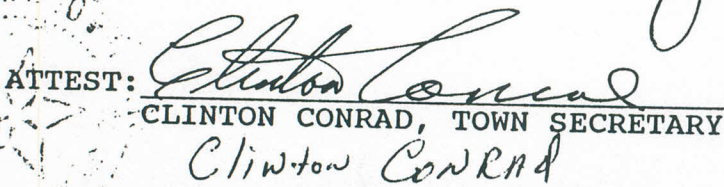 ATTEST: Clinton Conrad
CLINTON CONRAD, TOWN SECRETARY
Clinton CONRAd